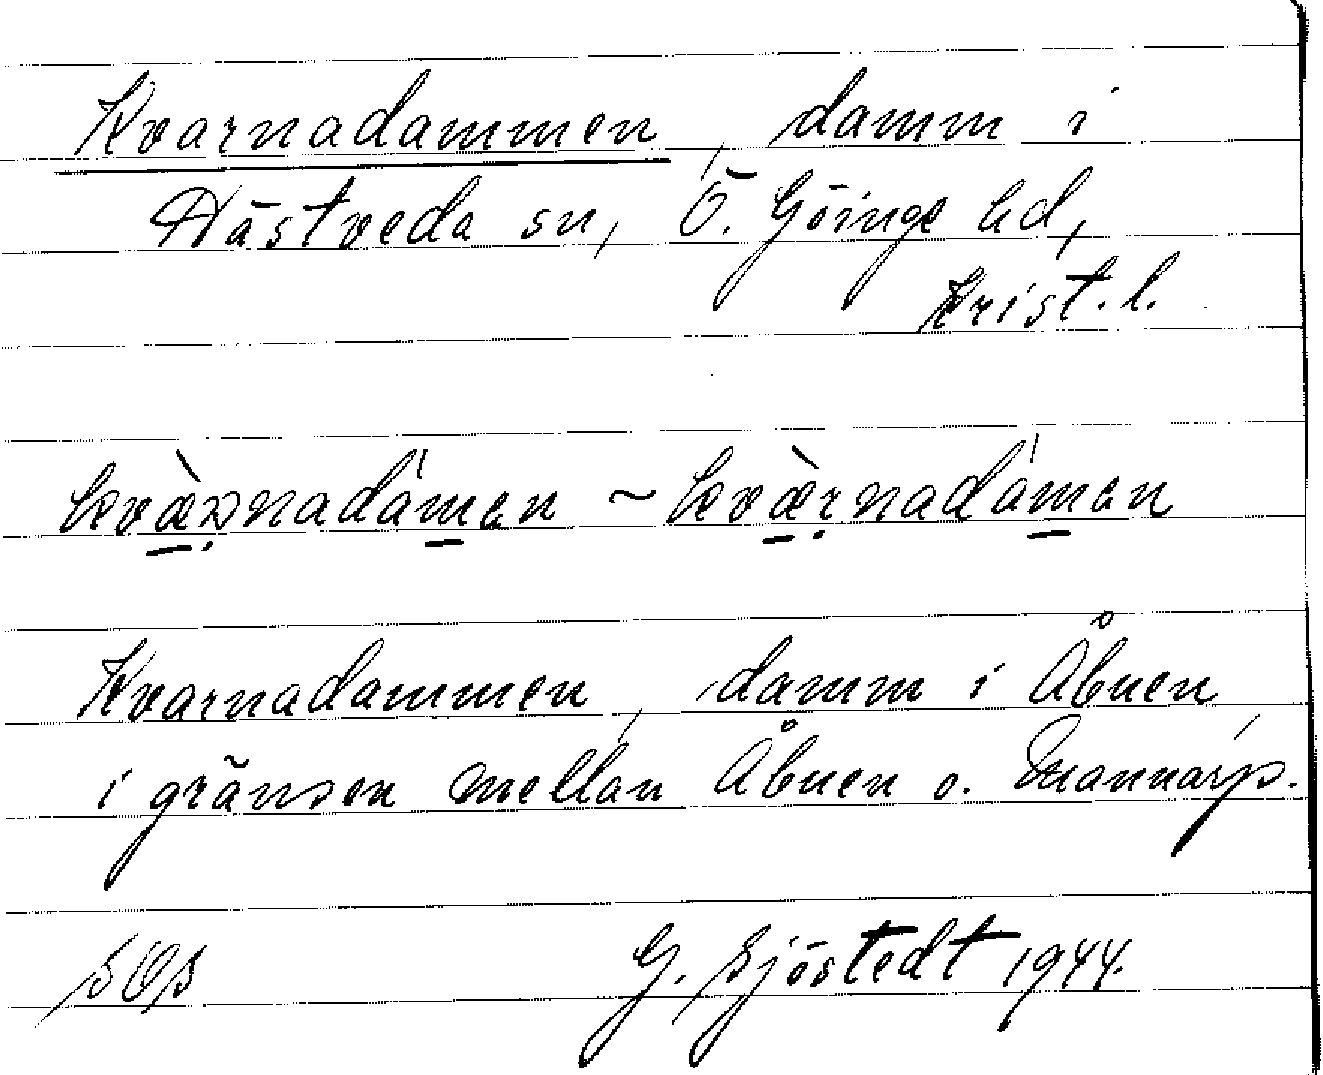 Kvarnadammen, damm i
Hästveda sn, Ö. Göinge hd,
Krist. l.
kvæ̀rnadám̱en ~ kvæ̀rnadám̱en
Kvarnadammen, damm i Åbuen,
i gränsen mellan Åbuen o. Mannarp.
SOS G. Sjöstedt 1944.